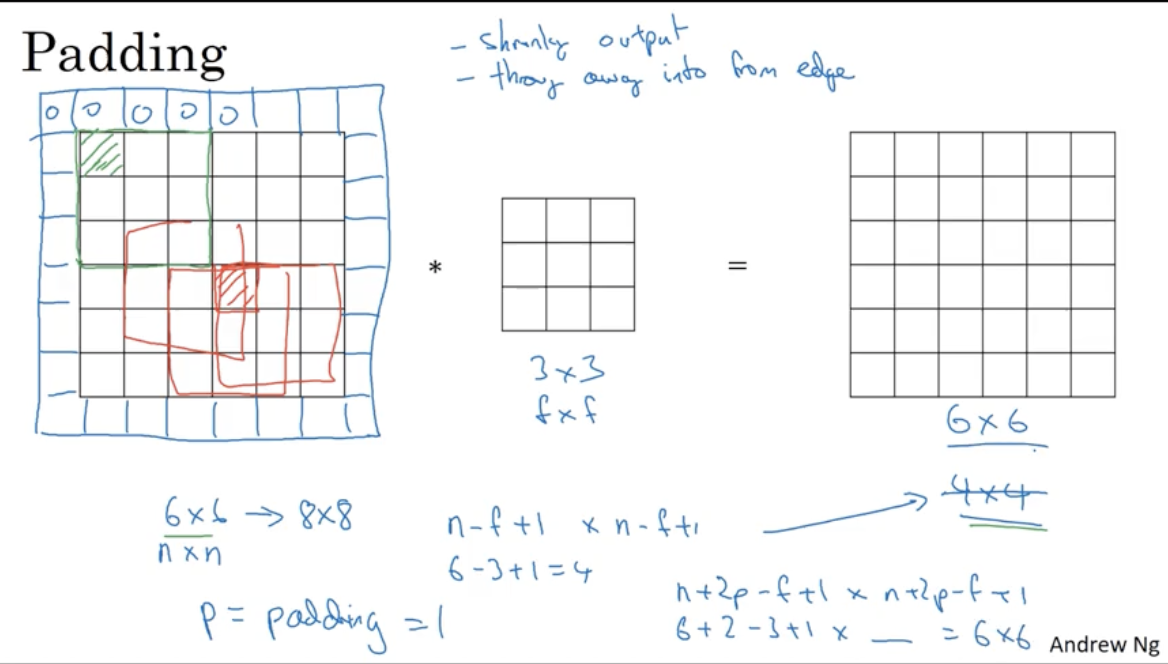 Padding
- shrinky output
- throw away info from edge
0 0 0 0 0
*
=
3×3
f×f
6×6
4×4
6×6 → 8×8
n×n
n-f+1 × n-f+1
6-3+1=4
p = padding = 1
n+2p-f+1 × n+2p-f+1
6+2-3+1 × __ = 6×6
Andrew Ng